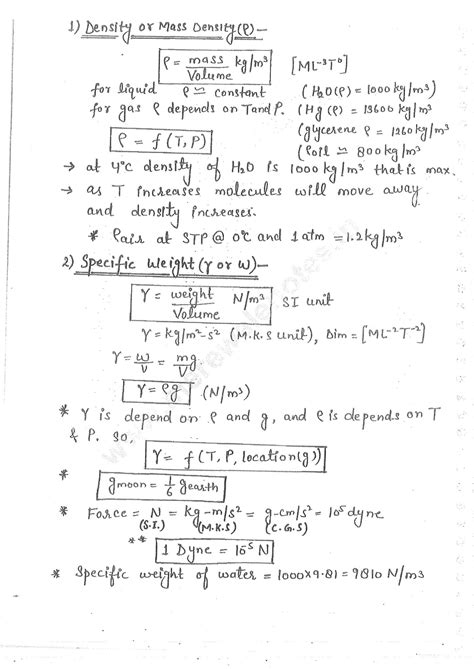 1) Density or Mass Density(ρ)—
ρ = mass/Volume kg/m³ [ML⁻³T⁰]
for liquid ρ ≃ constant (H₂O(ρ) = 1000 kg/m³)
for gas ρ depends on T and P. (Hg (ρ) = 13600 kg/m³)
ρ = f(T,P) (glycerene ρ = 1260 kg/m³)
(ρoil ≃ 800 kg/m³)
→ at 4°C density of H₂O is 1000 kg/m³ that is max.
→ as T increases molecules will move away
and density increases.
* ρair at STP @ 0°C and 1 atm = 1.2 kg/m³
2) Specific Weight (γ or w)—
γ = weight/Volume N/m³ SI unit
γ = kg/m²-s² (M.K.S unit), Dim = [ML⁻²T⁻²]
γ = w/V = mg/V
γ = ρg (N/m³)
* γ is depend on ρ and g, and ρ is depends on T
& P. So,
γ = f(T, P, location(g))
*
gmoon = 1/6 gearth
* Force = N = kg-m/s² = g-cm/s² = 10⁵ dyne
(S.I.) (M.K.S) (C.G.S)
** 1 Dyne = 10⁵ N
* Specific weight of water = 1000×9.81 = 9810 N/m³